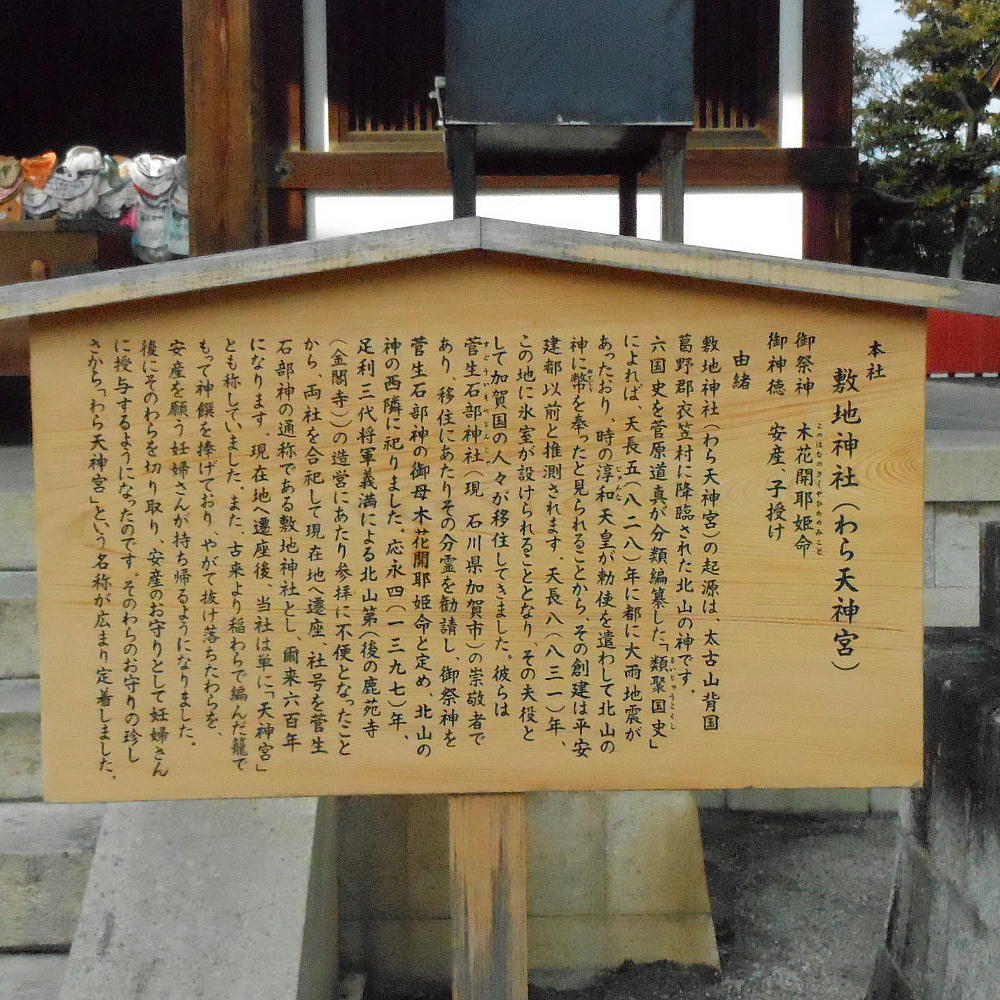 本社
敷地神社(わら天神宮)
御祭神　木花開耶姫命
このはなのさくやひめのみこと
御神徳　安産、子授け
由緒
敷地神社(わら天神宮)の起源は、太古山背国
葛野郡衣笠村に降臨された北山の神です。
六国史を菅原道真が分類編纂した「類聚国史」
るいじゅうこくし
によれば、天長五(八二八)年に都に大雨地震が
あったおり、時の淳和天皇が勅使を遣わして北山の
じゅんな
神に幣を奉ったと見られることから、その創建は平安
建都以前と推測されます。天長八(八三一)年、
この地に氷室が設けられることとなり、その夫役と
して加賀国の人々が移住してきました。彼らは
菅生石部神社(現　石川県加賀市)の崇敬者で
すごういそべじんじゃ
あり、移住にあたりその分霊を勧請し、御祭神を
菅生石部神の御母木花開耶姫命と定め、北山の
神の西隣に祀りました。応永四(一三九七)年、
足利三代将軍義満による北山第(後の鹿苑寺
(金閣寺))の造営にあたり参拝に不便となったこと
から、両社を合祀して現在地へ遷座、社号を菅生
石部神の通称である敷地神社とし、爾来六百年
になります。現在地へ遷座後、当社は単に「天神宮」
とも称していました。また、古来より稲わらで編んだ籠で
もって神饌を捧げており、やがて抜け落ちたわらを、
安産を願う妊婦さんが持ち帰るようになりました。
後にそのわらを切り取り、安産のお守りとして妊婦さん
に授与するようになったのです。そのわらのお守りの珍し
さから、「わら天神宮」という名称が広まり定着しました。